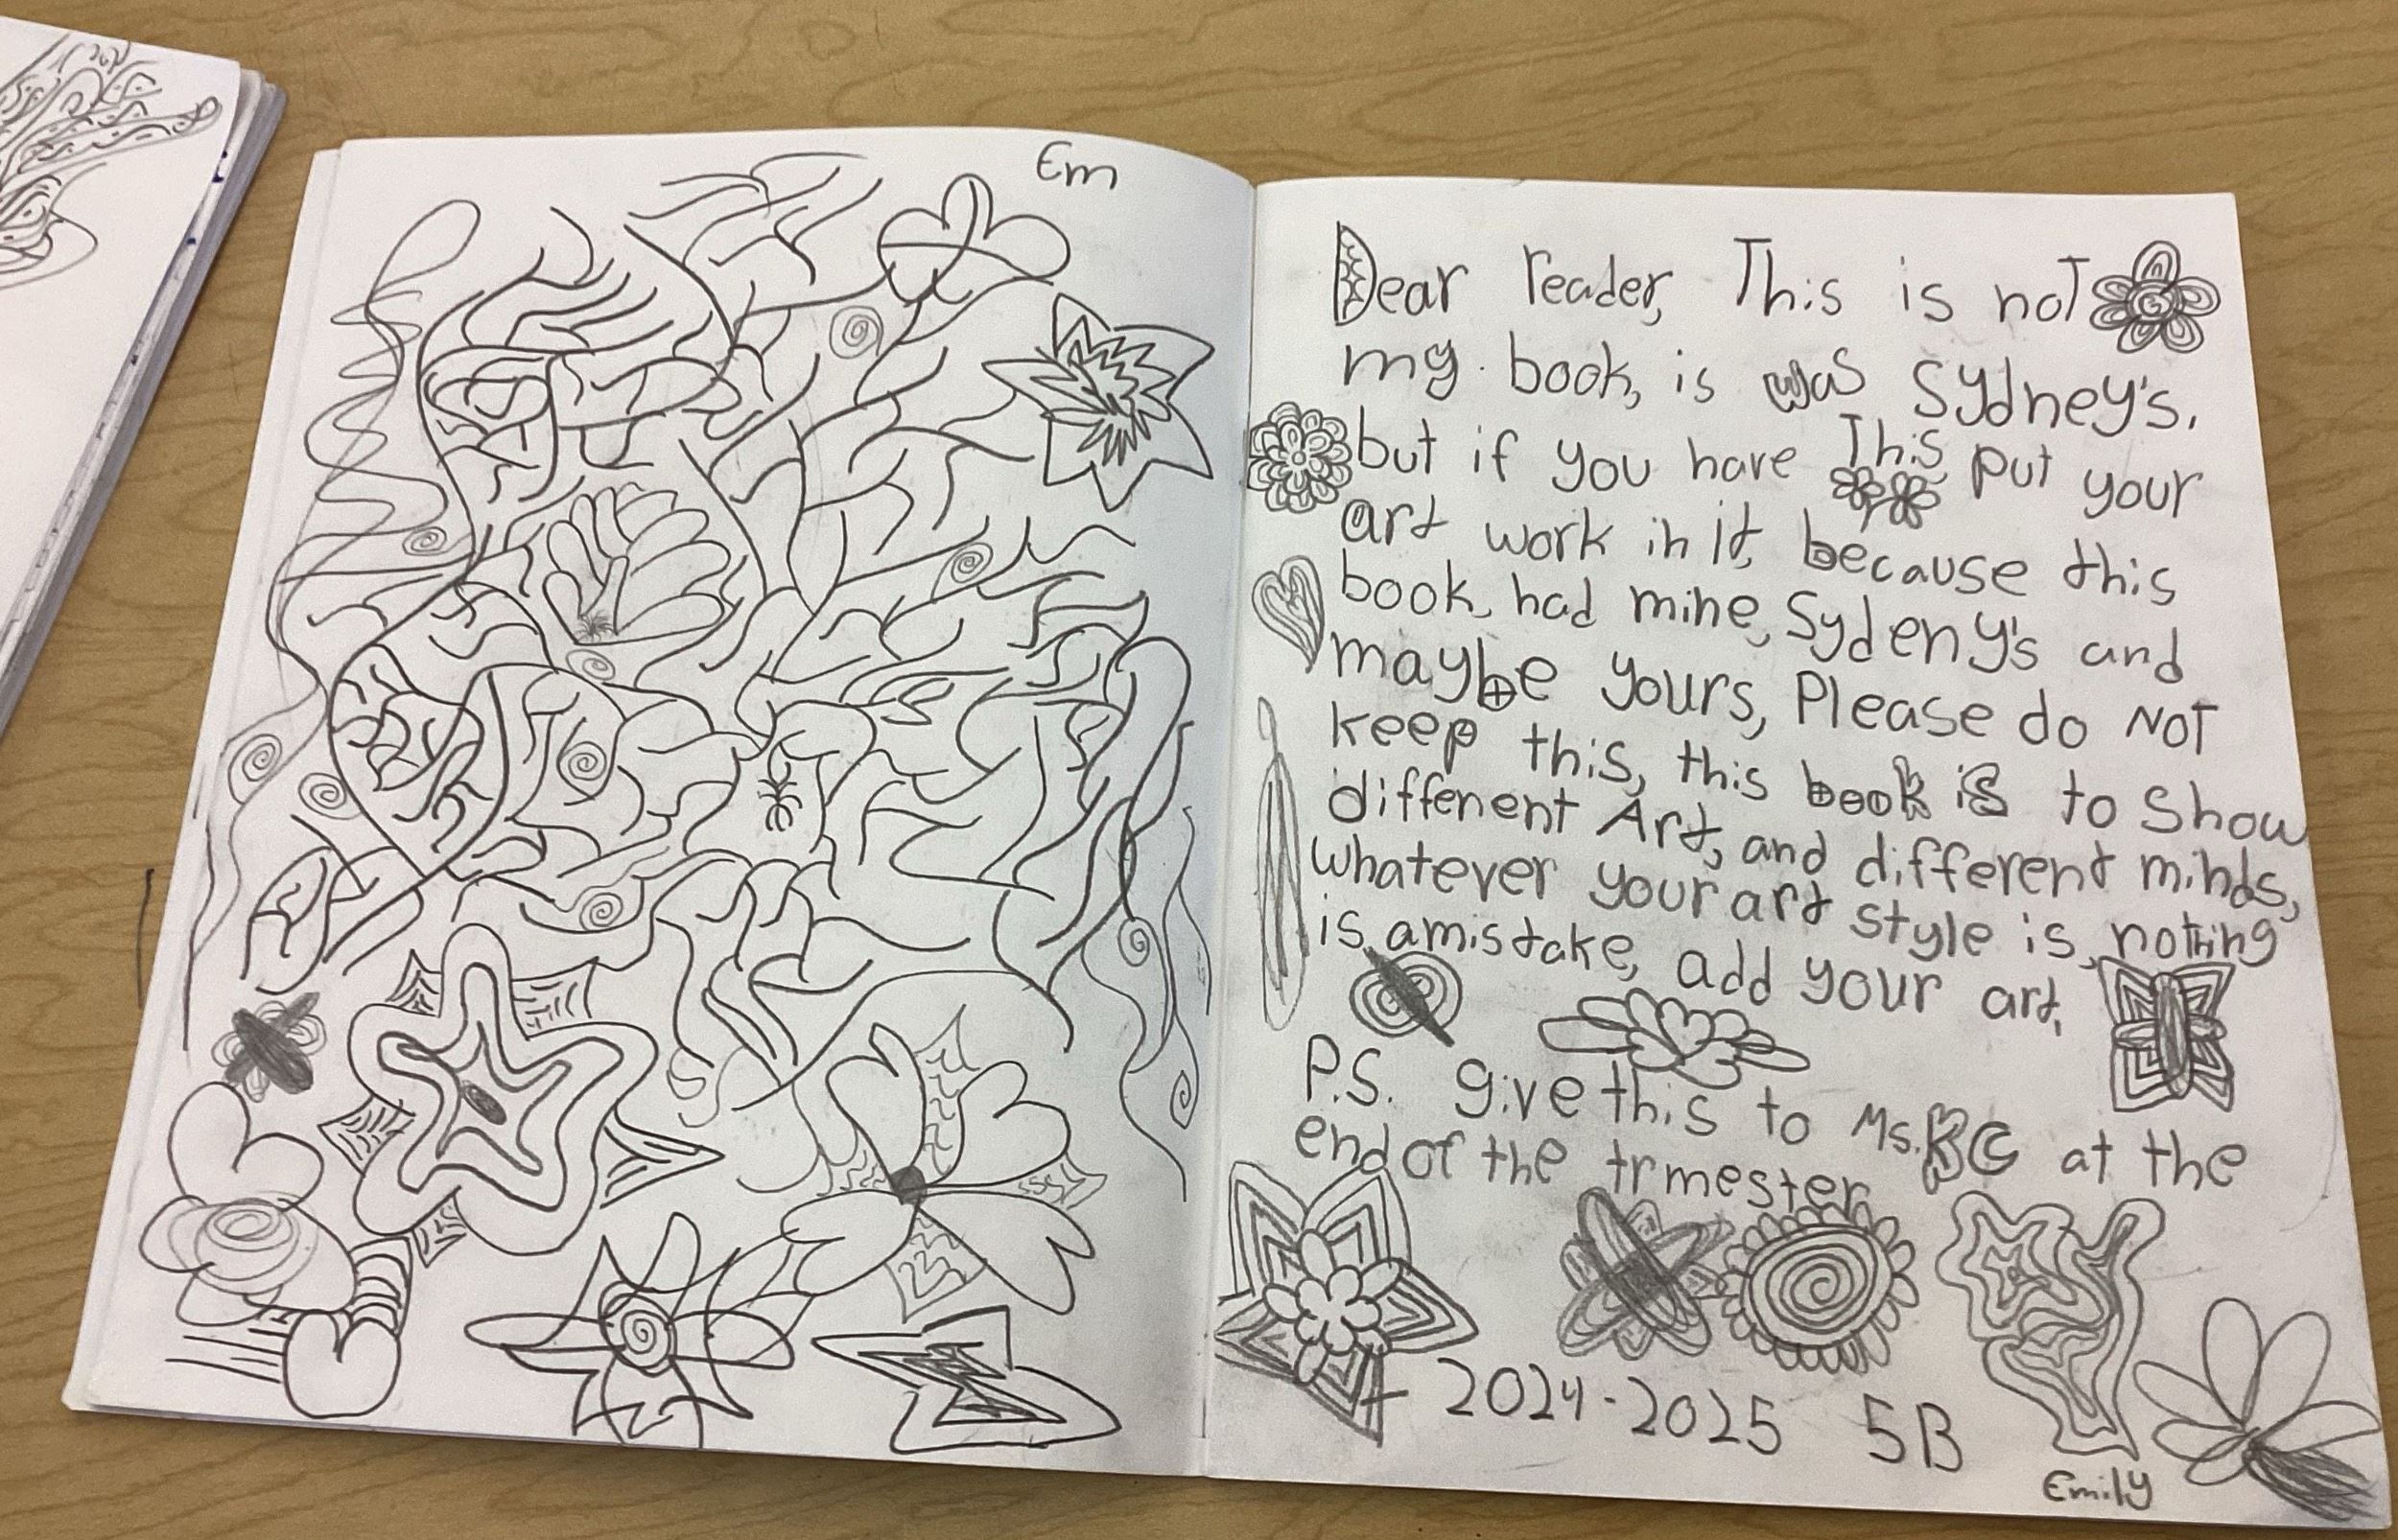 Em
Dear reader, This is not
my book, is was Sydney's,
but if you have This, put your
art work in it, because this
book, had mine, Sydeny's and
maybe yours, Please do NOT
keep this, this book is to show
diffenent Art, and different minds,
whatever your art style is, nothing
is amistake, add your art,
P.S. give this to Ms.BC at the
end of the trmester
2024-2025 5B
Emily